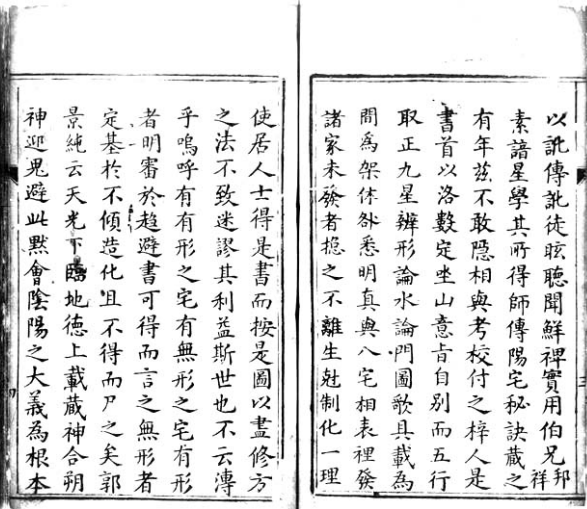 以訛傳訛徒眩聽聞鮮裨實用伯兄邦祥
素諳星學其所得師傳陽宅秘訣藏之
有年茲不敢隱相與考校付之梓人是
書首以洛數定坐山意旨自別而五行
取正九星辨形論水論門圖歌具載為
間為架休咎悉明真與八宅相表裡發
諸家未發者揔之不離生尅制化一理
使居人士得是書而按是圖以盡修方
之法不致迷謬其利益斯世也不云溥
乎嗚呼有有形之宅有無形之宅有形
者明審於趨避書可得而言之無形者
定基於不傾造化且不得而尸之矣郭
景純云天光下臨地德上載藏神合朔
神迎鬼避此黙會陰陽之大義為根本